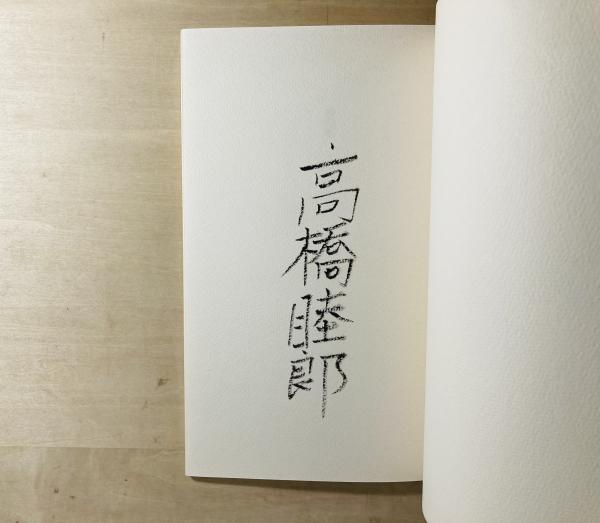 高橋睦郎